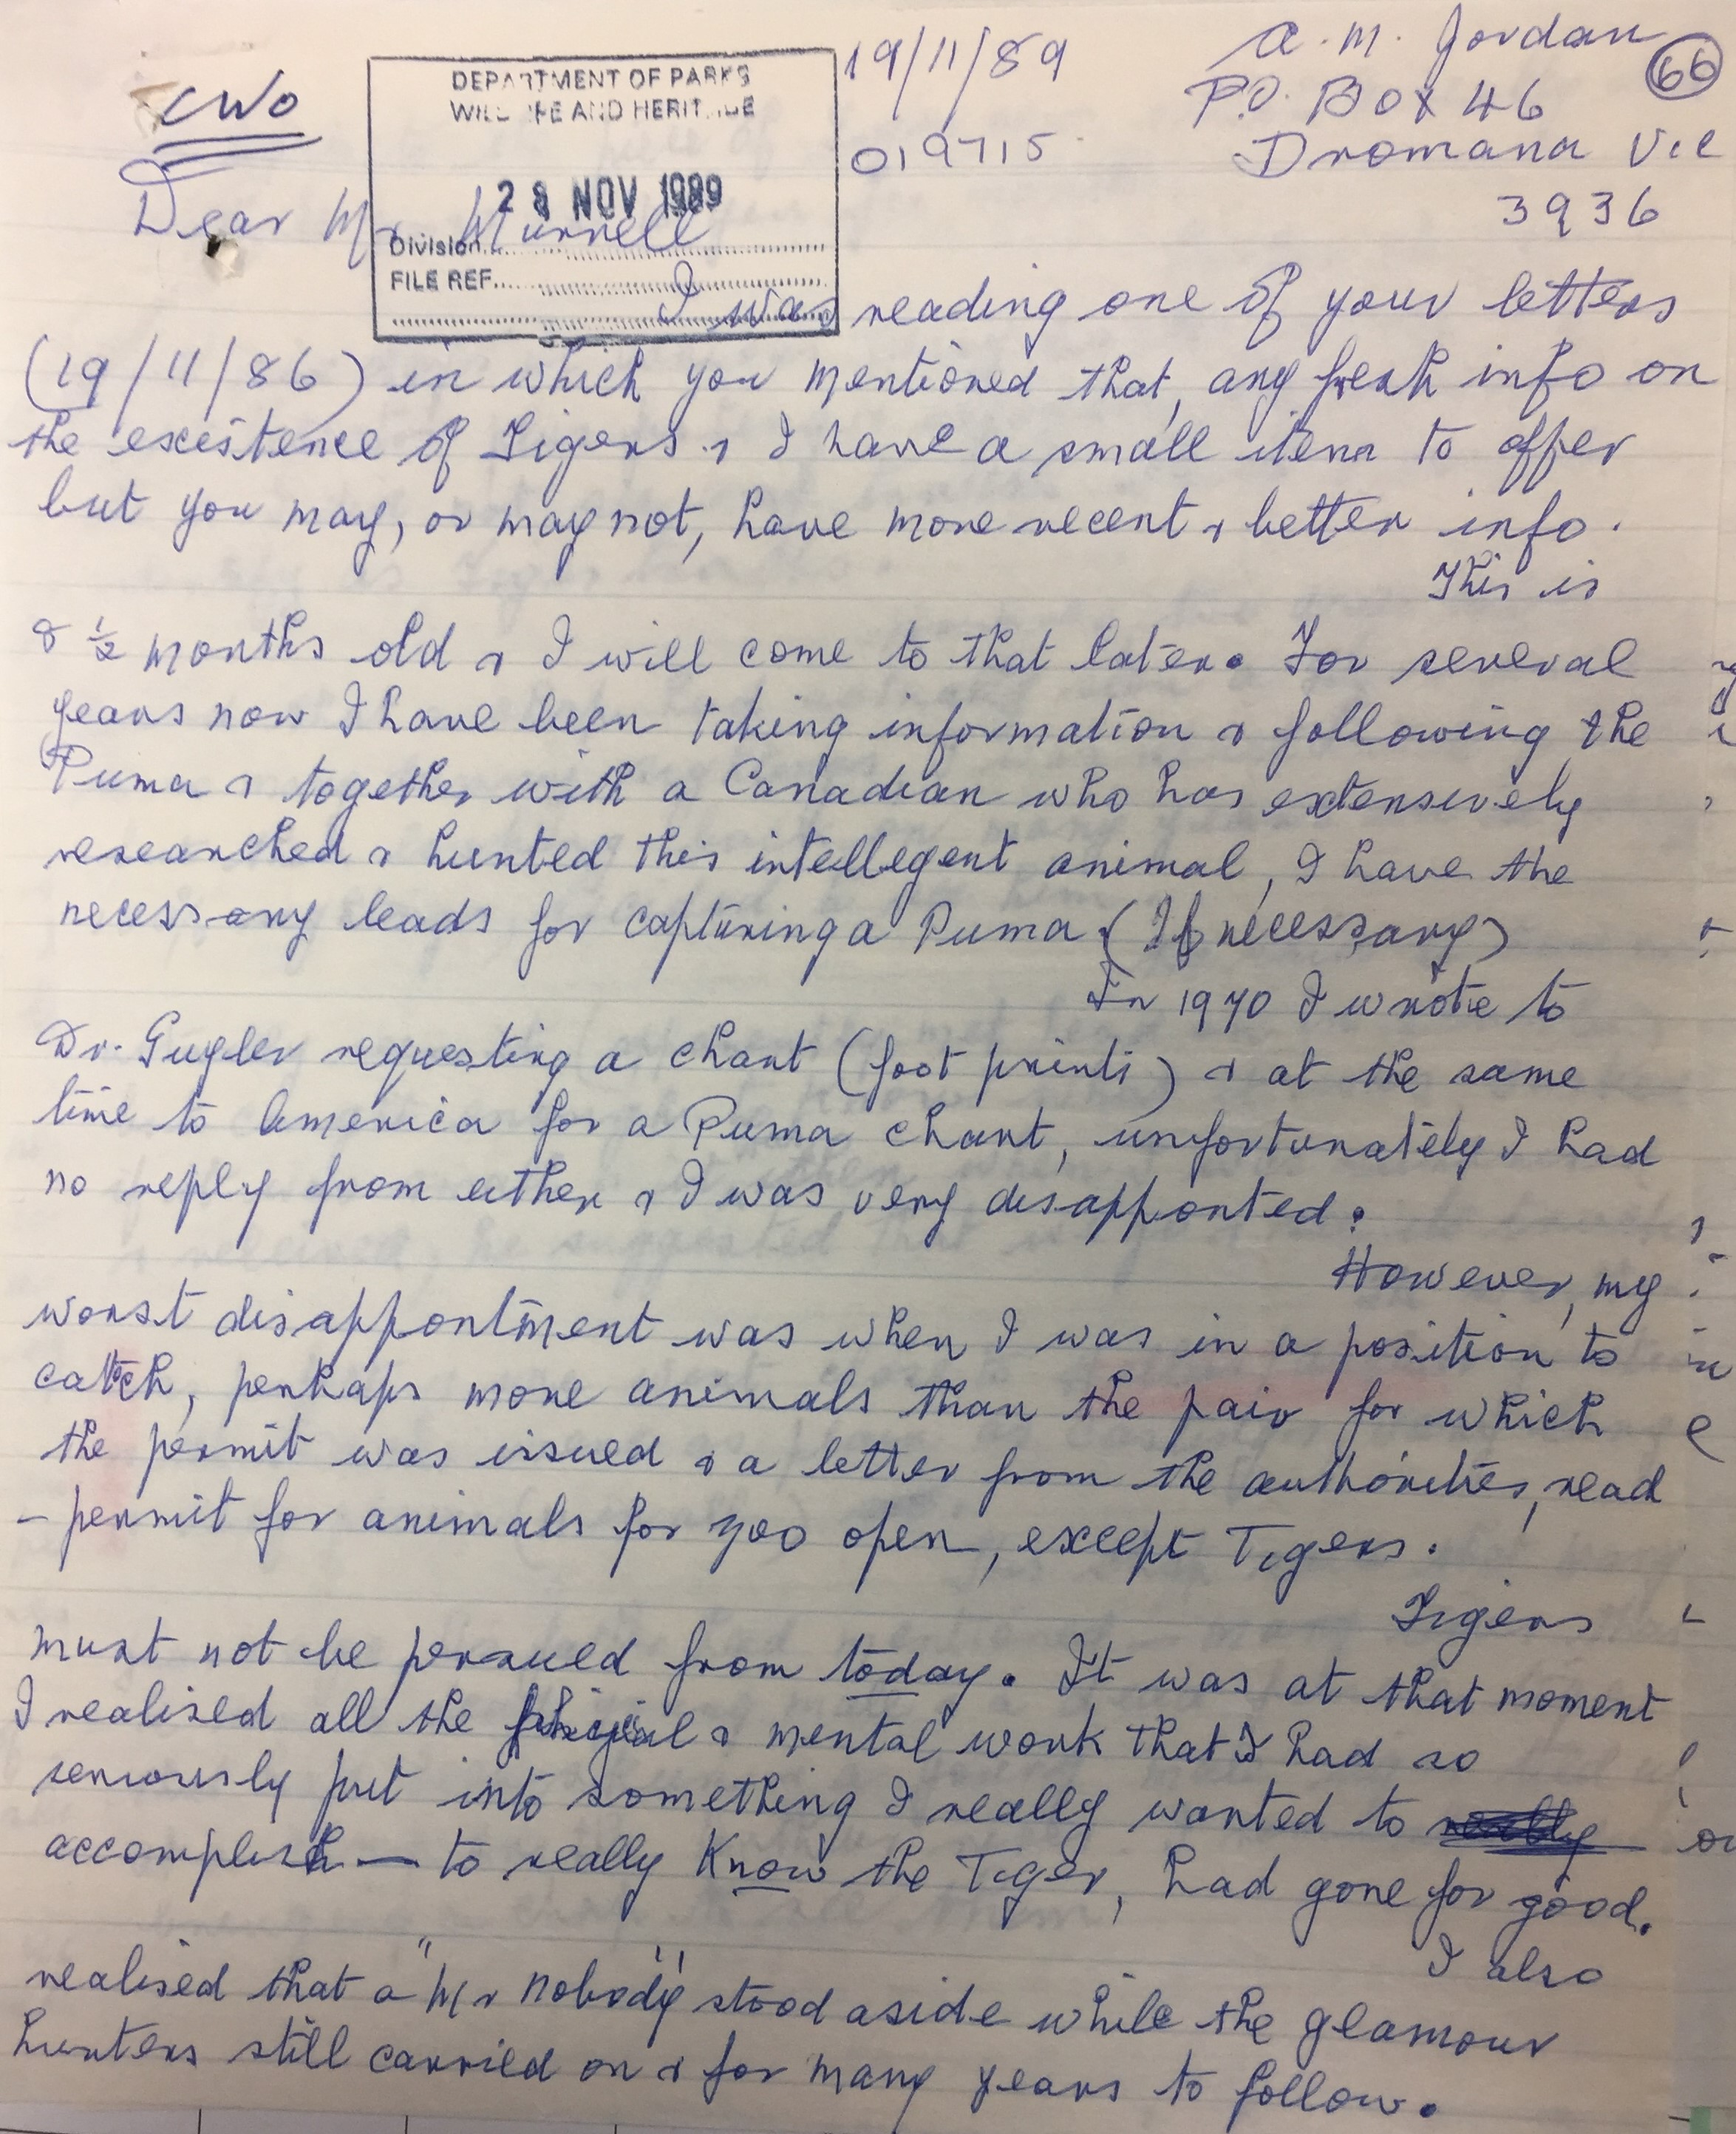 A. M. Jordan
66
19/11/89
P.O. Box 46
CWO
DEPARTMENT OF PARKS
WILDLIFE AND HERITAGE
019715
Dromana Vic
3936
28 NOV 1989
Dear Mr. Murrell
Division
FILE REF.
I was reading one of your letters
(19/11/86) in which you mentioned that, any fresh info on
the excistence of Tigers & I have a small item to offer
but you may, or may not, have more recent & better info.
This is
8 ½ months old & I will come to that later. For several
years now I have been taking information & following the
Puma & together with a Canadian who has extensively
researched & hunted this intellegent animal, I have the
necessary leads for capturing a Puma (If necessary)
In 1970 I wrote to
Dr. Gugler requesting a chart (foot prints) & at the same
time to America for a Puma chart, unfortunately I had
no reply from either & I was very disapponted.
However, my
worst disappontment was when I was in a position to
catch, perhaps more animals than the pair for which
the permit was issued & a letter from the authorities, read
- permit for animals for zoo open, except Tigers.
Tigers
must not be persued from today. It was at that moment
I realised all the & mental work that I had so
seriously put into something I really wanted to
accomplish — to really know the Tiger, had gone for good.
I also
realised that a "Mr nobody" stood aside while the glamour
hunters still carried on & for many years to follow.